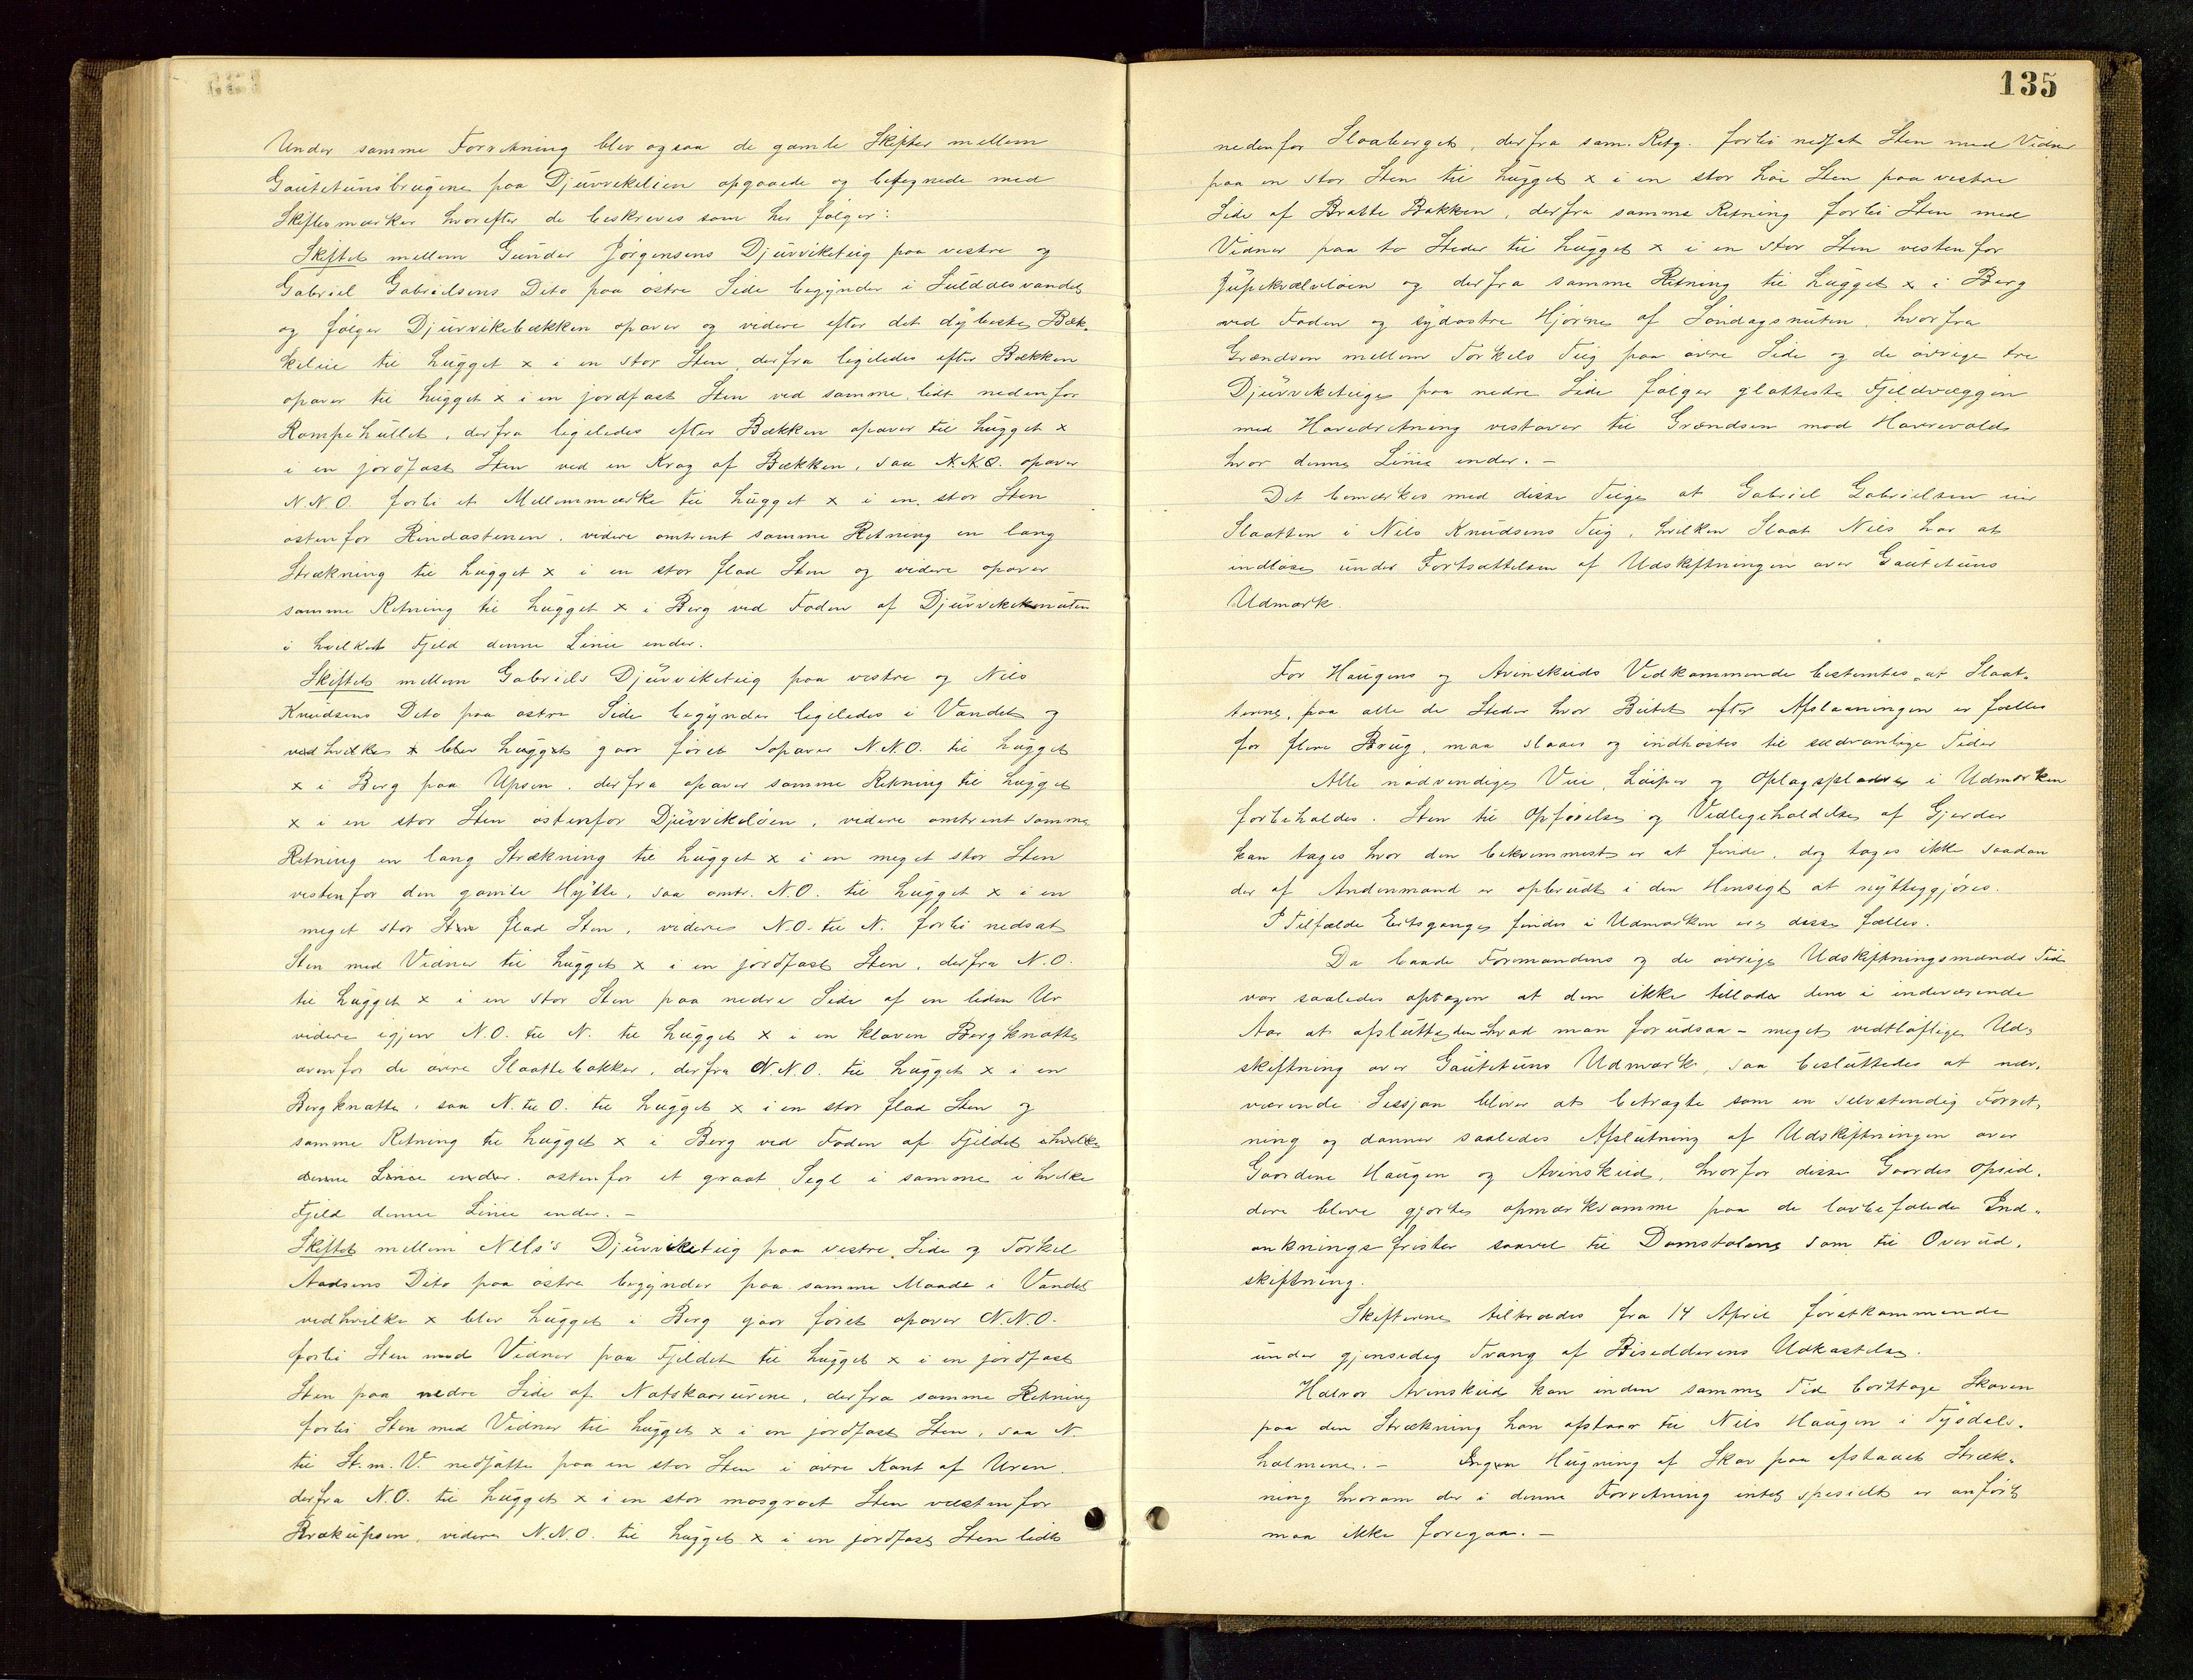 Under samme Forretning blev ogsaa de gamle Skifter mellem
Gautetunsbrugene paa Djuvvikelien opgaaede og betegnede med
Skiftesmærker hvorefter de beskreves som her følger:
Skiftet mellem Gunder Jörgensens Djuvviketeig paa vestre og
Gabriel Gabrielsens Dito paa östre Side begynder i Suldalsvandet
og følger Djuvvikebækken opover og videre efter det dybeste Bæk-
keleie til hugget x i en stor Sten, derfra ligeledes efter Bækken
opover til hugget x i en jordfast Sten ved samme, lidt nedenfor
Rompehullet, derfra ligeledes efter Bækken opover til hugget x
i en jordfast Sten ved en Krog af Bækken, saa N.N.O. opover
N.N.O. forbi et Mellemmærke til hugget x i en stor Sten
östenfor Rindastenen, videre omtrent samme Retning en lang
Strækning til hugget x i en stor flad Sten og videre opover
samme Retning til hugget x i Berg ved Foden af Djuvvikeknuten
i hvilket Fjeld denne Linie ender.
Skiftet mellem Gabriels Djuvviketeig paa vestre og Nils
Knudsens Dito paa östre Side begynder ligeledes i Vandet og
ved hvilke x blev hugget gaar först opover N.N.O. til hugget
x i Berg paa Upsen, derfra opover samme Retning til hugget
x i en stor Sten östenfor Djuvvikelöen, videre omtrent samme
Retning en lang Strækning til hugget x i en meget stor Sten
vestenfor den gamle Hytte, saa omtr. N.O. til hugget x i en
meget stor Sten flad Sten, videre N.O. til N. forbi nedsat
Sten med Vidner til hugget x i en jordfast Sten, derfra N.O.
til hugget x i en stor Sten paa nedre Side af en liden Ur
videre igjen N.O. til N. til hugget x i en kloven Bergknatte
ovenfor de övre Slaattebakker, derfra N.N.O. til hugget x i en
Bergknatte, saa N. til O. til hugget x i en stor flad Sten og
samme Retning til hugget x i Berg ved Foden af Fjeldet i hvilke
denne Linie ender. östenfor et graat Segl i samme i hvilke
Fjeld denne Linie ender. –
Skiftet mellem Nils's Djuvviketeig paa vestre Side og Torkel
Aadsens Dito paa östre begynder paa samme Maade i Vandet
ved hvilke x blev hugget i Berg gaar först opover N.N.O.
forbi Sten med Vidner paa Fjeldet til hugget x i en jordfast
Sten paa nedre Side af Natskaarurene, derfra samme Retning
forbi Sten med Vidner til hugget x i en jordfast Sten, saa N.
til St. m. V. nedsatte paa en stor Sten i övre Kant af Uren
derfra N.O. til hugget x i en stor mosgroet Sten vestenfor
Brækupsen, videre N.N.O. til hugget x i en jordfast Sten lidt
135
nedenfor Slaaberget, derfra sam. Retg. forbi nedsat Sten med Vidner
paa en stor Sten til hugget x i en stor höi Sten paa vestre
Side af Bratte Bakken, derfra samme Retning forbi Sten med
Vidner paa to Steder til hugget x i en stor Sten vestenfor
og derfra samme Retning til hugget x i Berg
ved Foden og sydöstre Hjörne af Söndagsnuten, hvorfra
Grændsen mellem Torkels Teig paa övre Side og de övrige tre
Djuvviketeige paa nedre Side følger glatteste Fjeldvæggen
med Hovedretning vestover til Grændsen mod Havrevold
hvor denne Linie ender. –
Det bemærkes med disse Teige at Gabriel Gabrielsen eier
Slaatten i Nils Knudsens Teig, hvilken Slaat Nils har at
indløse under Fortsættelsen af Udskiftningen over Gautetuns
Udmark.
For Haugens og Avinskeids Vedkommende bestemtes, at Slaat-
terne, paa alle de Steder hvor Beitet efter Afslaaningen er fælles
for flere Brug, maa slaaes og indhöstes til sædvanlige Tider
Alle nödvendige Veie, Löiper og Oplagspladse i Udmarken
forbeholdes. Sten til Opførelse og Vedligeholdelse af Gjerder
kan tages hvor den bekvemmest er at finde, dog tages ikke saadan
der af Andenmand er opbrudt i den Hensigt at nyttegjöres.
I Tilfælde Ertsgange findes i Udmarken ere disse fælles.
Da baade Formandens og de övrige Udskiftningsmænds Tid
var saaledes optagen at den ikke tillader dem i indeværende
Aar at afslutte den hvad man forudsaa – meget vidtløftige Ud-
skiftning over Gautetuns Udmark, saa besluttedes at nær-
værende Sessjon bliver at betragte som en selvstendig Forret-
ning og danner saaledes Afslutning af Udskiftningen over
Gaardene Haugen og Avinskeid, hvorfor disse Gaardes Opsid-
dere bleve gjorte opmærksomme paa de lovbefalede Ind-
ankningsfrister saavel til Domstolene som til Overud-
skiftning.
Skifterne tiltrædes fra 14 April førstkommende
under gjensidig Tvang af Besidderens Udkastelse.
Halvor Avinskeid kan inden samme Tid borttage Skoven
paa den Strækning han afstaar til Nils Haugen i Tysdals-
holmene. – Ingen Hugning af Skov paa afstaaet Stræk-
ning hvorom der i denne Forretning intet spesielt er anført
maa ikke foregaa. –